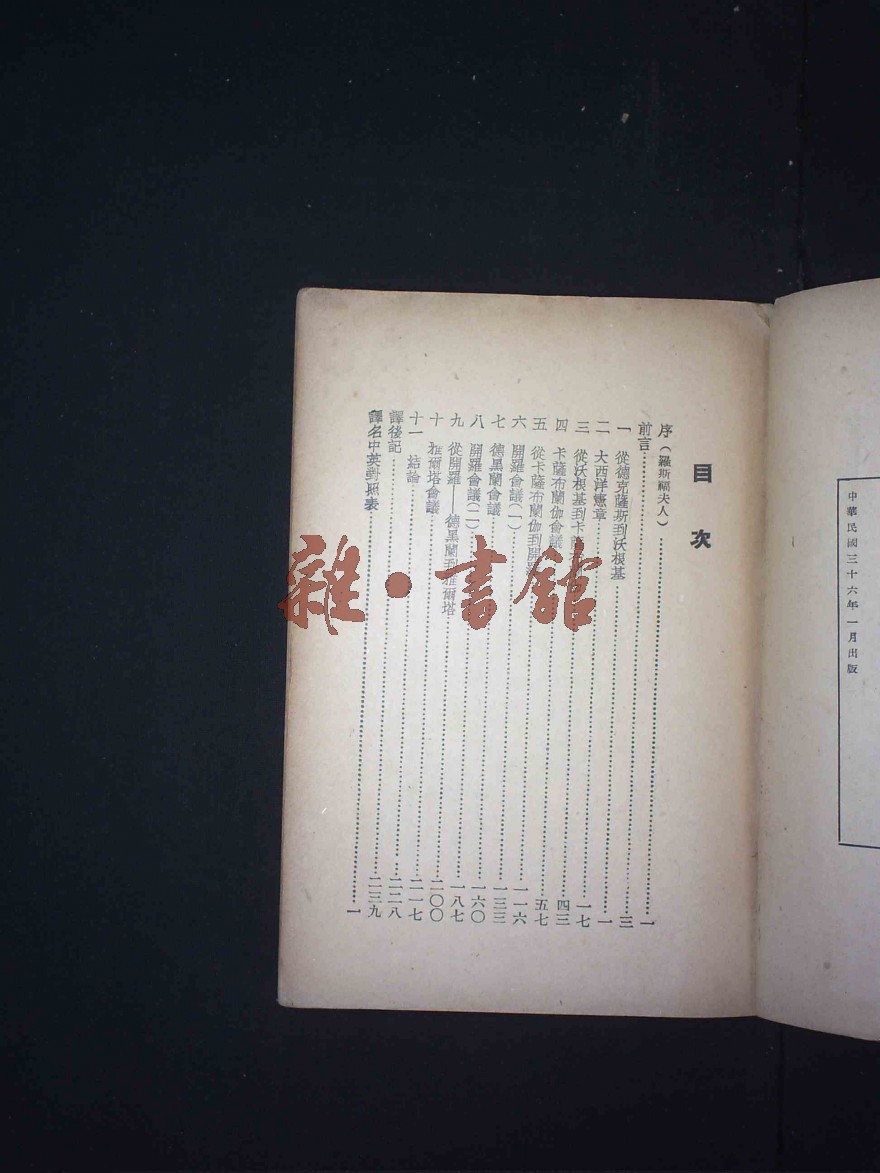 中華民國三十六年一月出版
目次
序（羅斯福夫人）……一
前言……三
一 從德克薩斯到沃根基……一
二 大西洋憲章……一七
三 從沃根基到卡薩……四三
四 卡薩布蘭伽會議……五七
五 從卡薩布蘭伽到開羅……一一六
六 開羅會議（一）……一三三
七 德黑蘭會議……一六〇
八 開羅會議（二）……一八七
九 從開羅——德黑蘭到雅爾塔……二〇〇
十 雅爾塔會議……二一七
十一 結論……二二八
譯後記……二三九
譯名中英對照表……一
雜·書館